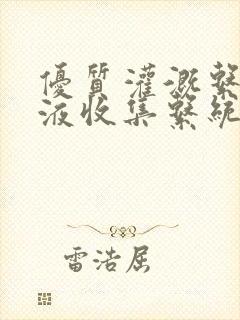 優質灌溉繫
液收集繫統
雷浩居